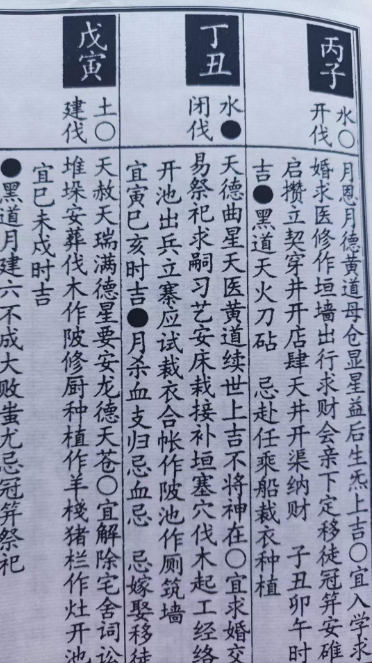 丙子
水○
开伐
月恩月德黄道母仓显星益后生炁上吉○宜入学求
婚求医修作垣墙出行求财会亲下定移徒冠笄安碓
启攒立契穿井开店肆天井开渠纳财 子丑卯午时
吉●黑道天火刀砧 忌赴任乘船裁衣种植
丁丑
水●
闭伐
天德曲星天医黄道续世上吉不将神在○宜求婚交
易祭祀求嗣习艺安床栽接补垣塞穴伐木起工经络
开池出兵立寨应试裁衣合帐作陂池作厕筑墙
宜寅巳亥时吉●月杀血支归忌血忌 忌嫁娶移徒
戊寅
土○
建伐
天赦天瑞满德星要安龙德天苍○宜解除宅舍词讼
堆垛安葬伐木作陂修厨种植作羊栈猪栏作灶开池
宜巳未戌时吉
●黑道月建六不成大败蚩尤忌冠笄祭祀